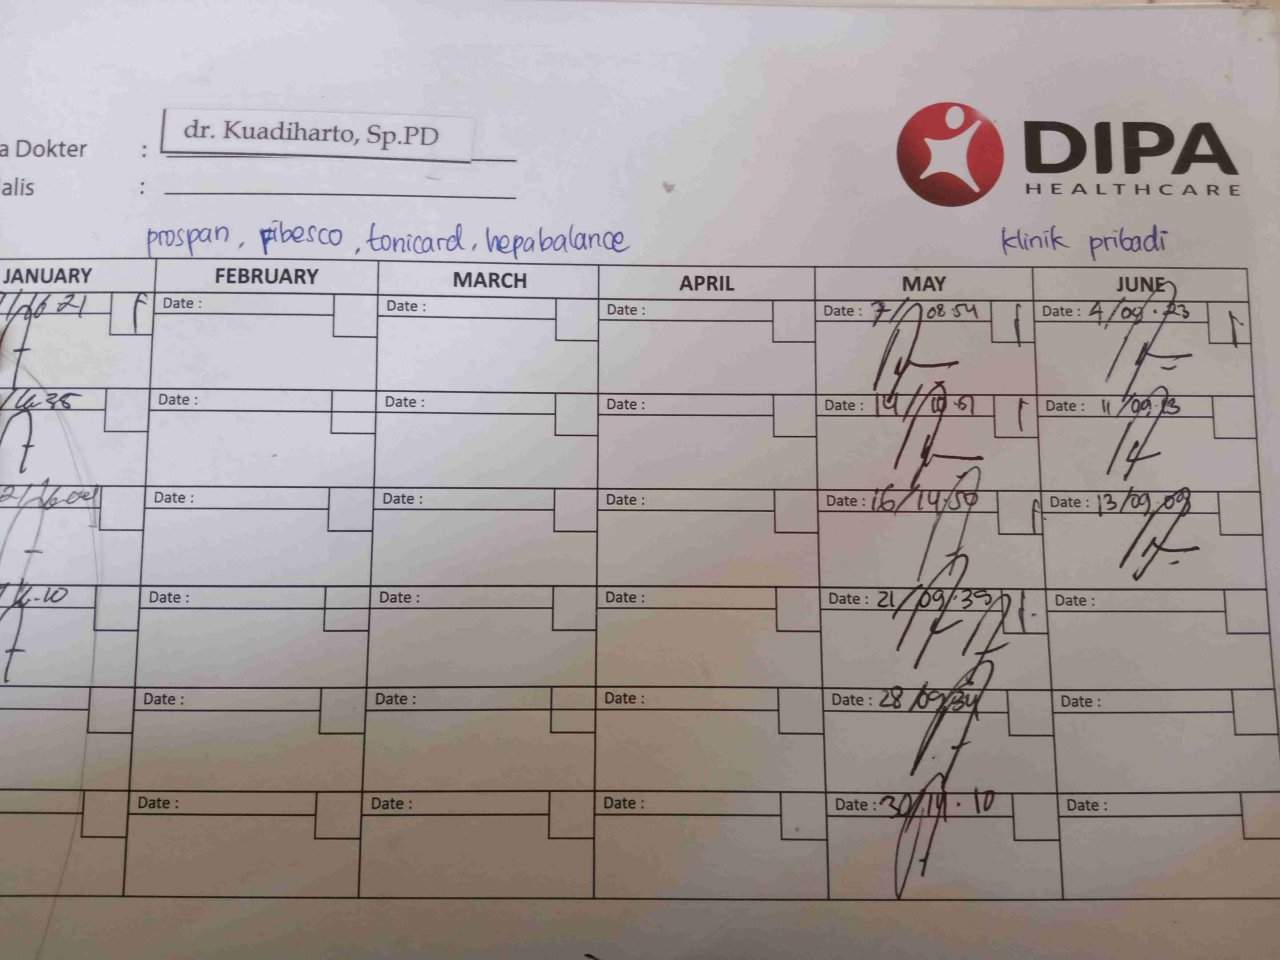 dr. Kuadiharto, Sp.PD
DIPA
HEALTHCARE
a Dokter :
alis :
prospan, ribesco, tonicard, hepabalance
klinik pribadi
JANUARY FEBRUARY MARCH APRIL MAY JUNE
Date : Date : Date : Date : 7/08.54 Date : 4/09.23
Date : Date : Date : Date : 14/ Date : 11/09.13
Date : Date : Date : Date : 16/14.50 Date : 13/09.09
Date : Date : Date : Date : 21/09.39 Date :
Date : Date : Date : Date : 28/09.34 Date :
Date : Date : Date : Date : 30/14.10 Date :